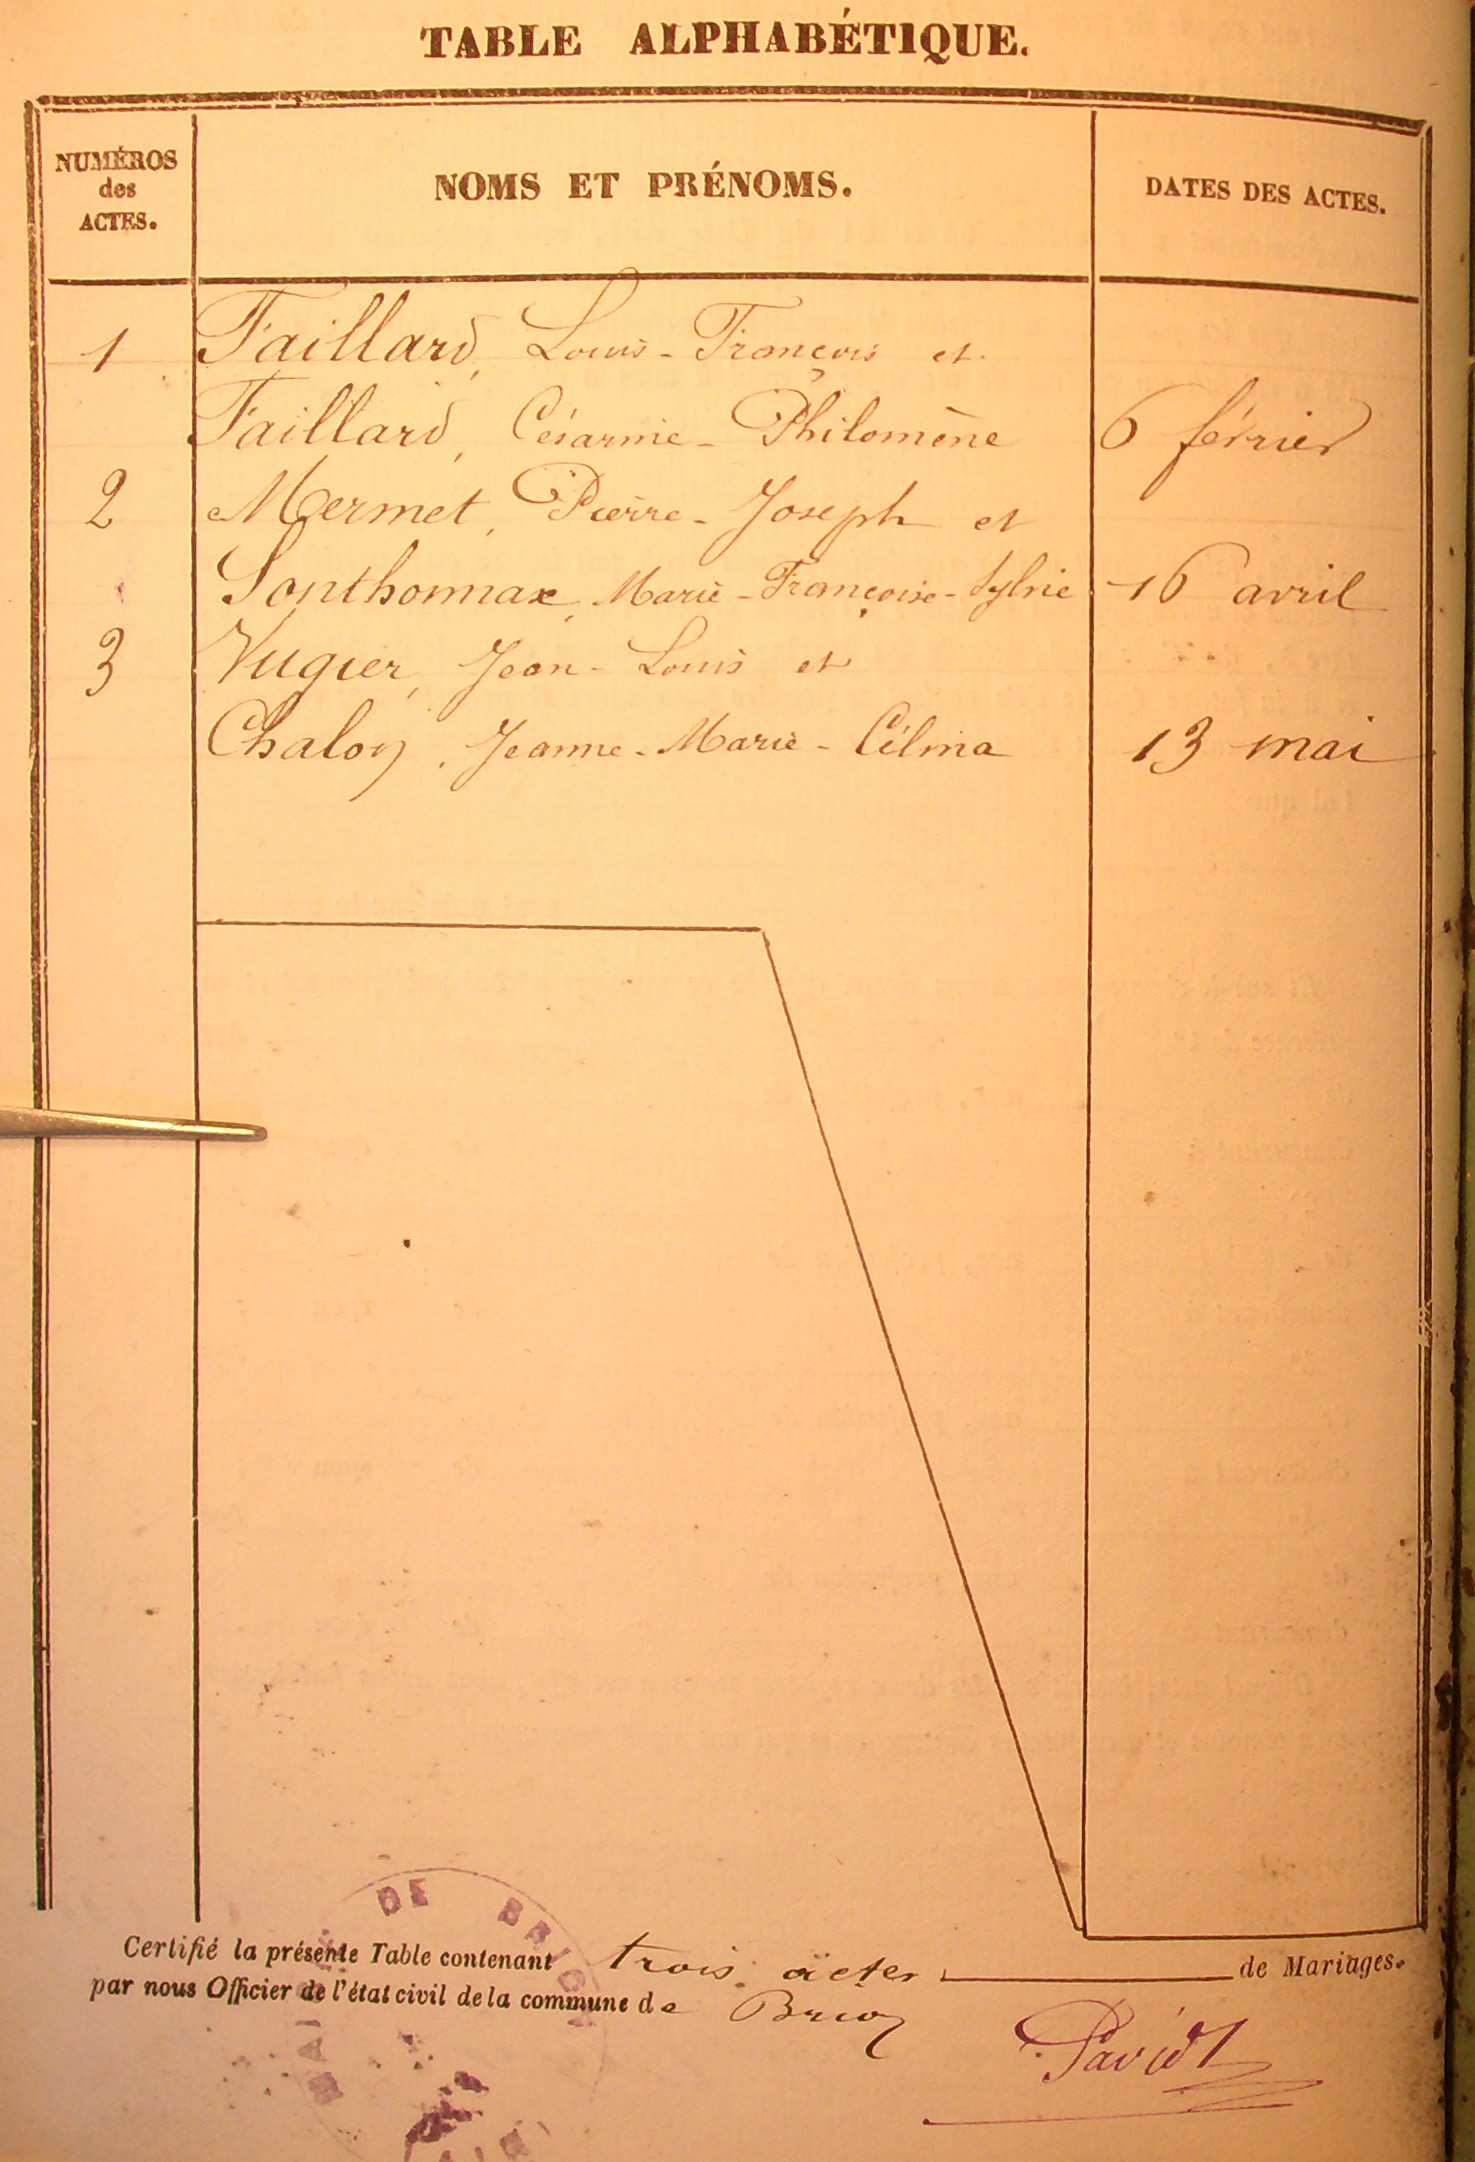 TABLE ALPHABÉTIQUE.
NUMÉROS
des
ACTES.
NOMS ET PRÉNOMS.
DATES DES ACTES.
1 Faillard, Louis-François et
Faillard, Césarine-Philomène 6 février
2 Mermet, Pierre-Joseph et
Sonthonnax, Marie-Françoise-Sylvie 16 avril
3 Vugier, Jean-Louis et
Chalon, Jeanne-Marie-Célina 13 mai
Certifié la présente Table contenant trois actes de Mariages.
par nous Officier de l'état civil de la commune de Brion
DE BRION